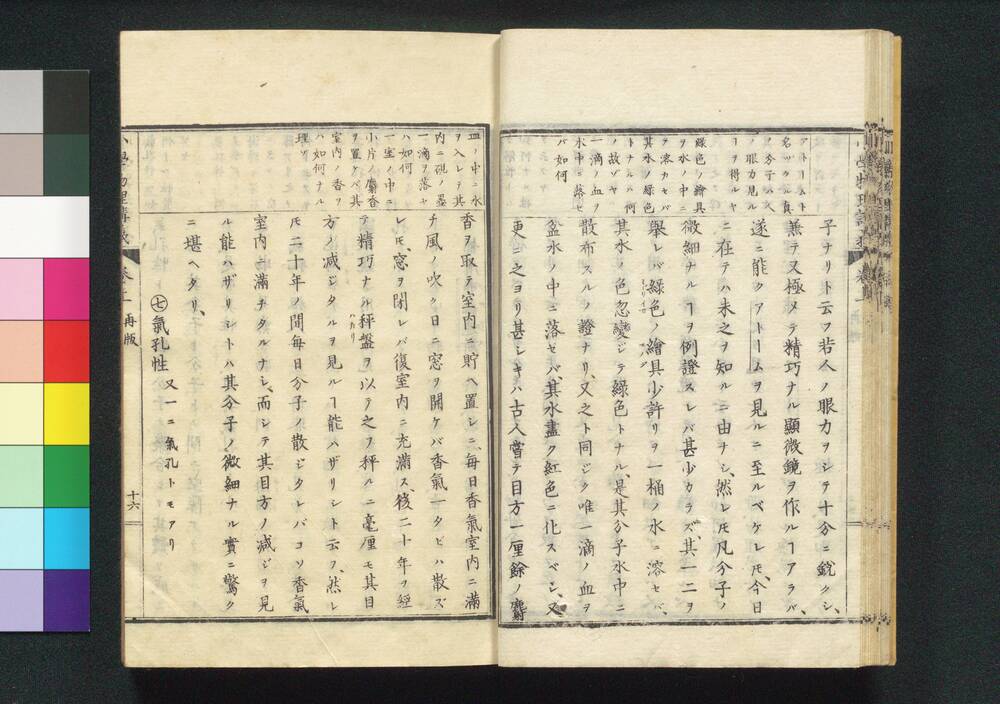 アトームト
名ヅクル真
ノ分子ハ人
ノ眼力見ル
ヿヲ得ルヤ
緑色ノ繪具
ヲ水ノ中ニ
テ溶カセバ
其水ノ緑色
トナルハ何
ノ故ゾヤ
一滴ノ血ヲ
水中ニ落セ
バ如何
子ナリト云フ若人ノ眼力ヲシテ十分ニ鋭クシ、
兼テ又極メテ精巧ナル顕微鏡ヲ作ルヿアラバ、
遂ニ能クアトームヲ見ルニ至ルベケレ𪜈、今日
ニ在テハ未之ヲ知ルニ由ナシ、然レ𪜈凡分子ノ
微細ナルヿヲ例證スレバ甚少カラズ、其一二ヲ
舉レバ緑色ノ繪具少許リヲ一桶ノ水ニ溶セバ、
其水ノ色忽變ジテ緑色トナル、是其分子水中ニ
散布スルノ證ナリ、又之ト同ジク唯一滴ノ血ヲ
盆水ノ中ニ落セバ、其水盡ク紅色ニ化スベシ、又
更ニ之ヨリ甚シキハ古人嘗テ目方一厘餘ノ麝
皿ノ中ニ水
ヲ入レテ其
内ニ硯ノ墨
一滴ヲ落セ
ハ如何
一室ノ中ニ
小片ノ麝香
ヲ置ケバ其
室内ノ香ヲ
ハ如何ナル
理ゾ
香ヲ取テ室内ニ貯ヘ置シニ、毎日香氣室内ニ滿
チ風ノ吹ク日ニ窓ヲ開ケバ香氣一タビハ散ズ
レ𪜈、窓ヲ閉レバ復室内ニ充滿ス、後二十年ヲ經
テ精巧ナル秤盤ヲ以テ之ヲ秤ルニ毫厘モ其目
はかり
方ノ減シタルヲ見ルヿ能ハザリシト云フ、然レ
𪜈二十年ノ間毎日分子ノ散ジタレバコソ香氣
室内ニ滿チタルナレ、而シテ其目方ノ減ジヲ見
ル能ハザリシトハ其分子ノ微細ナル實ニ驚ク
ニ堪ヘタリ、
㊆氣孔性 又一ニ氣孔トモアリ
小學物理講義 卷之二 再版 十六